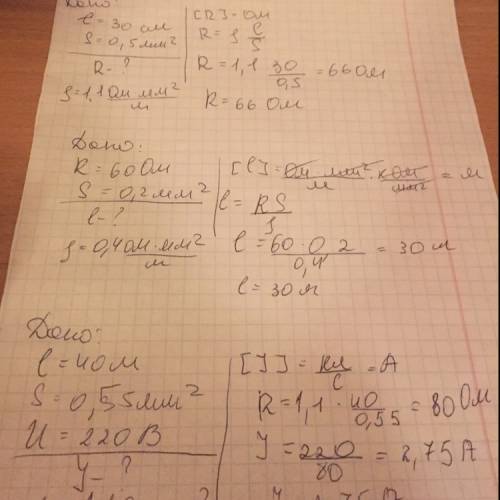 Дано:
l = 30 м
S = 0,5 мм²
R - ?
ρ = 1,1 Ом·мм²/м
[R] = Ом
R = ρ l/S
R = 1,1 30/0,5 = 66 Ом
R = 66 Ом
Дано:
R = 60 Ом
S = 0,2 мм²
l - ?
ρ = 0,4 Ом·мм²/м
= м
l = RS/ρ
l = 60·0,2/0,4 = 30 м
l = 30 м
Дано:
l = 40 м
S = 0,55 мм²
U = 220 В
J - ?
[J] = Кл/с = А
R = 1,1 · 40/0,55 = 80 Ом
J = 220/80 = 2,75 А